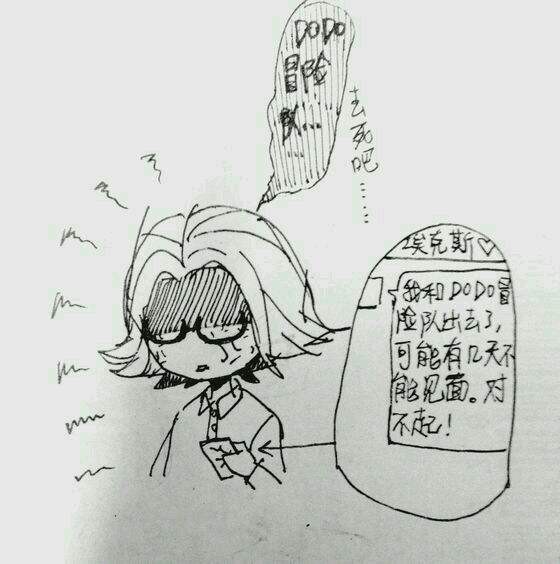 DODO
冒险
队...
...
去死吧……
埃克斯♡
我和DODO冒
险队出去了,
可能有几天不
能见面。对
不起!